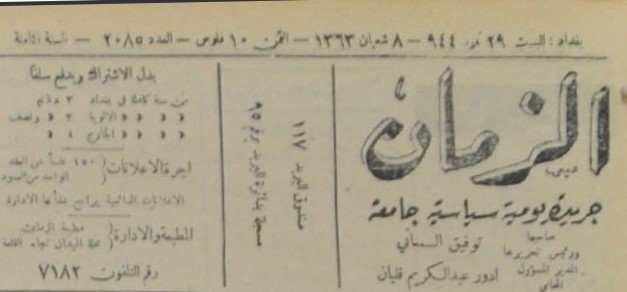 بغداد : السبت ٢٩ تموز ٩٤٤ – ٨ شعبان ١٣٦٣ – الثمن ١٠ فلوس – العدد ٢٠٨٥ – السنة الثامنة
الزمان
جريدة يومية سياسية جامعة
صاحبها
ورئيس تحريرها
توفيق السمعاني
المدير المسؤول
المحامي
ادور عبدالكريم قليان
صندوق البريد ١١٧
مسجلة بدائرة البريد برقم ٩٥
بدل الاشتراك ويدفع سلفا
عن سنة كاملة في بغداد ٢ دنانير
» » » » الالوية ٢ » ونصف
» » » » الخارج ٤ »
اجرة الاعلانات ( ١٥٠ فلساً عن العقد
الواحد من العمود
الاعلانات الدائمية يراجع بشأنها الادارة
المطبعة والادارة ( مطبعة الزمان
محلة الميدان تجاه القلعة
رقم التلفون ٧١٨٢